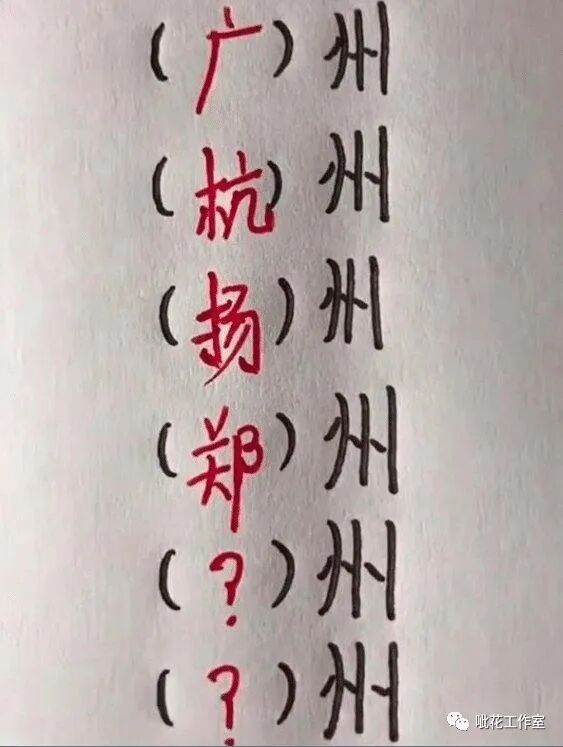 （广）州
（杭）州
（扬）州
（郑）州
（？）州
（？）州
呲花工作室